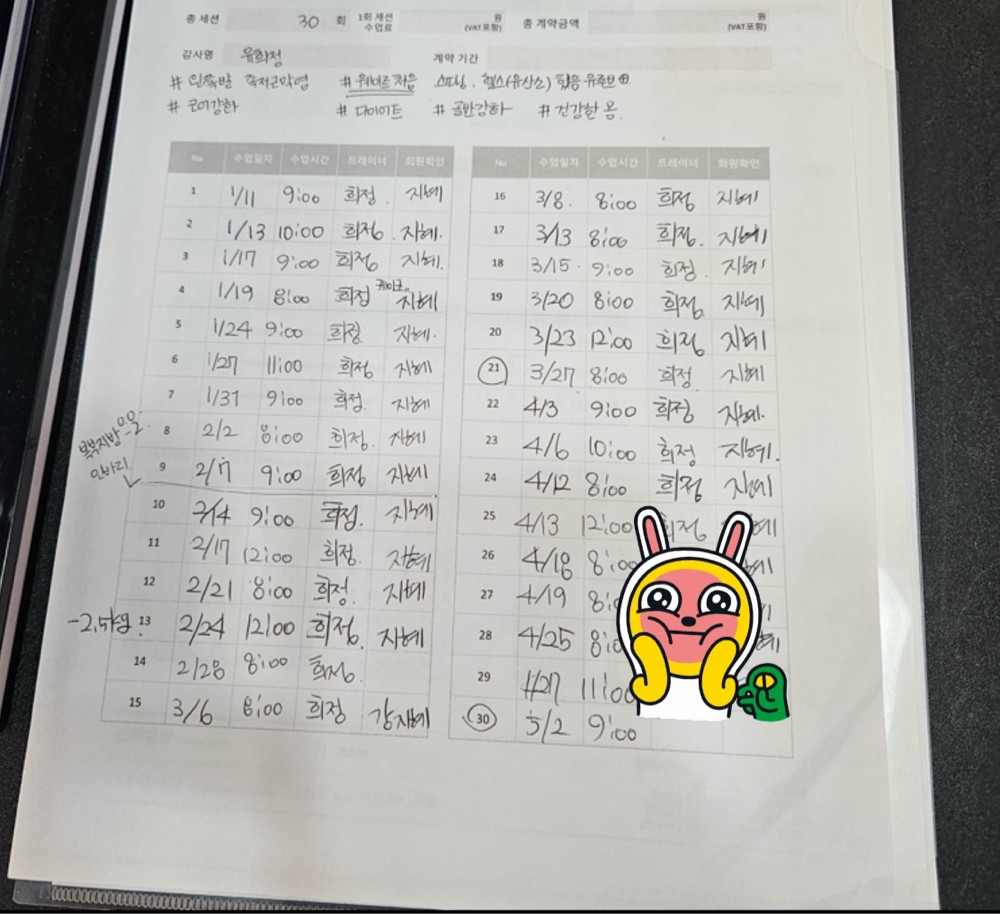 총 세션 30 회 1회 세션 수업료 원 (VAT포함) 총 계약금액 원 (VAT포함)
강사명 유희정 계약 기간
# 왼쪽발 족저근막염 # 웨이트처음 스피닝. 헬스(유산소)
# 코어강화 # 다이어트 # 골반강화 # 건강한 몸.
No 수업일자 수업시간 트레이너 회원확인
1 1/11 9:00 희정. 지혜
2 1/13 10:00 희정. 지혜.
3 1/17 9:00 희정 지혜.
4 1/19 8:00 희정 지혜
5 1/24 9:00 희정. 지혜.
6 1/27 11:00 희정 지혜
7 1/31 9:00 희정. 지혜
8 2/2 8:00 희정. 지혜
복부지방
인바디
9 2/7 9:00 희정 지혜
10 2/14 9:00 희정. 지혜
11 2/17 12:00 희정. 지혜
12 2/21 8:00 희정. 지혜
13 2/24 12:00 희정. 지혜
14 2/28 8:00 희정.
15 3/6 8:00 희정 강지혜
No 수업일자 수업시간 트레이너 회원확인
16 3/8. 8:00 희정 지혜
17 3/13 8:00 희정. 지혜
18 3/15. 9:00 희정. 지혜
19 3/20 8:00 희정. 지혜
20 3/23 12:00 희정 지혜
21 3/27 8:00 희정. 지혜
22 4/3 9:00 희정 지혜.
23 4/6 10:00 희정 지혜.
24 4/12 8:00 희정 지혜
25 4/13 12:00 희정
26 4/18
27 4/19
28 4/25
29 11:00
30 5/2 9:00